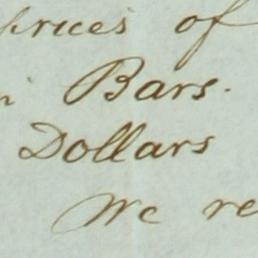 prices of
Bars.
Dollars
We re